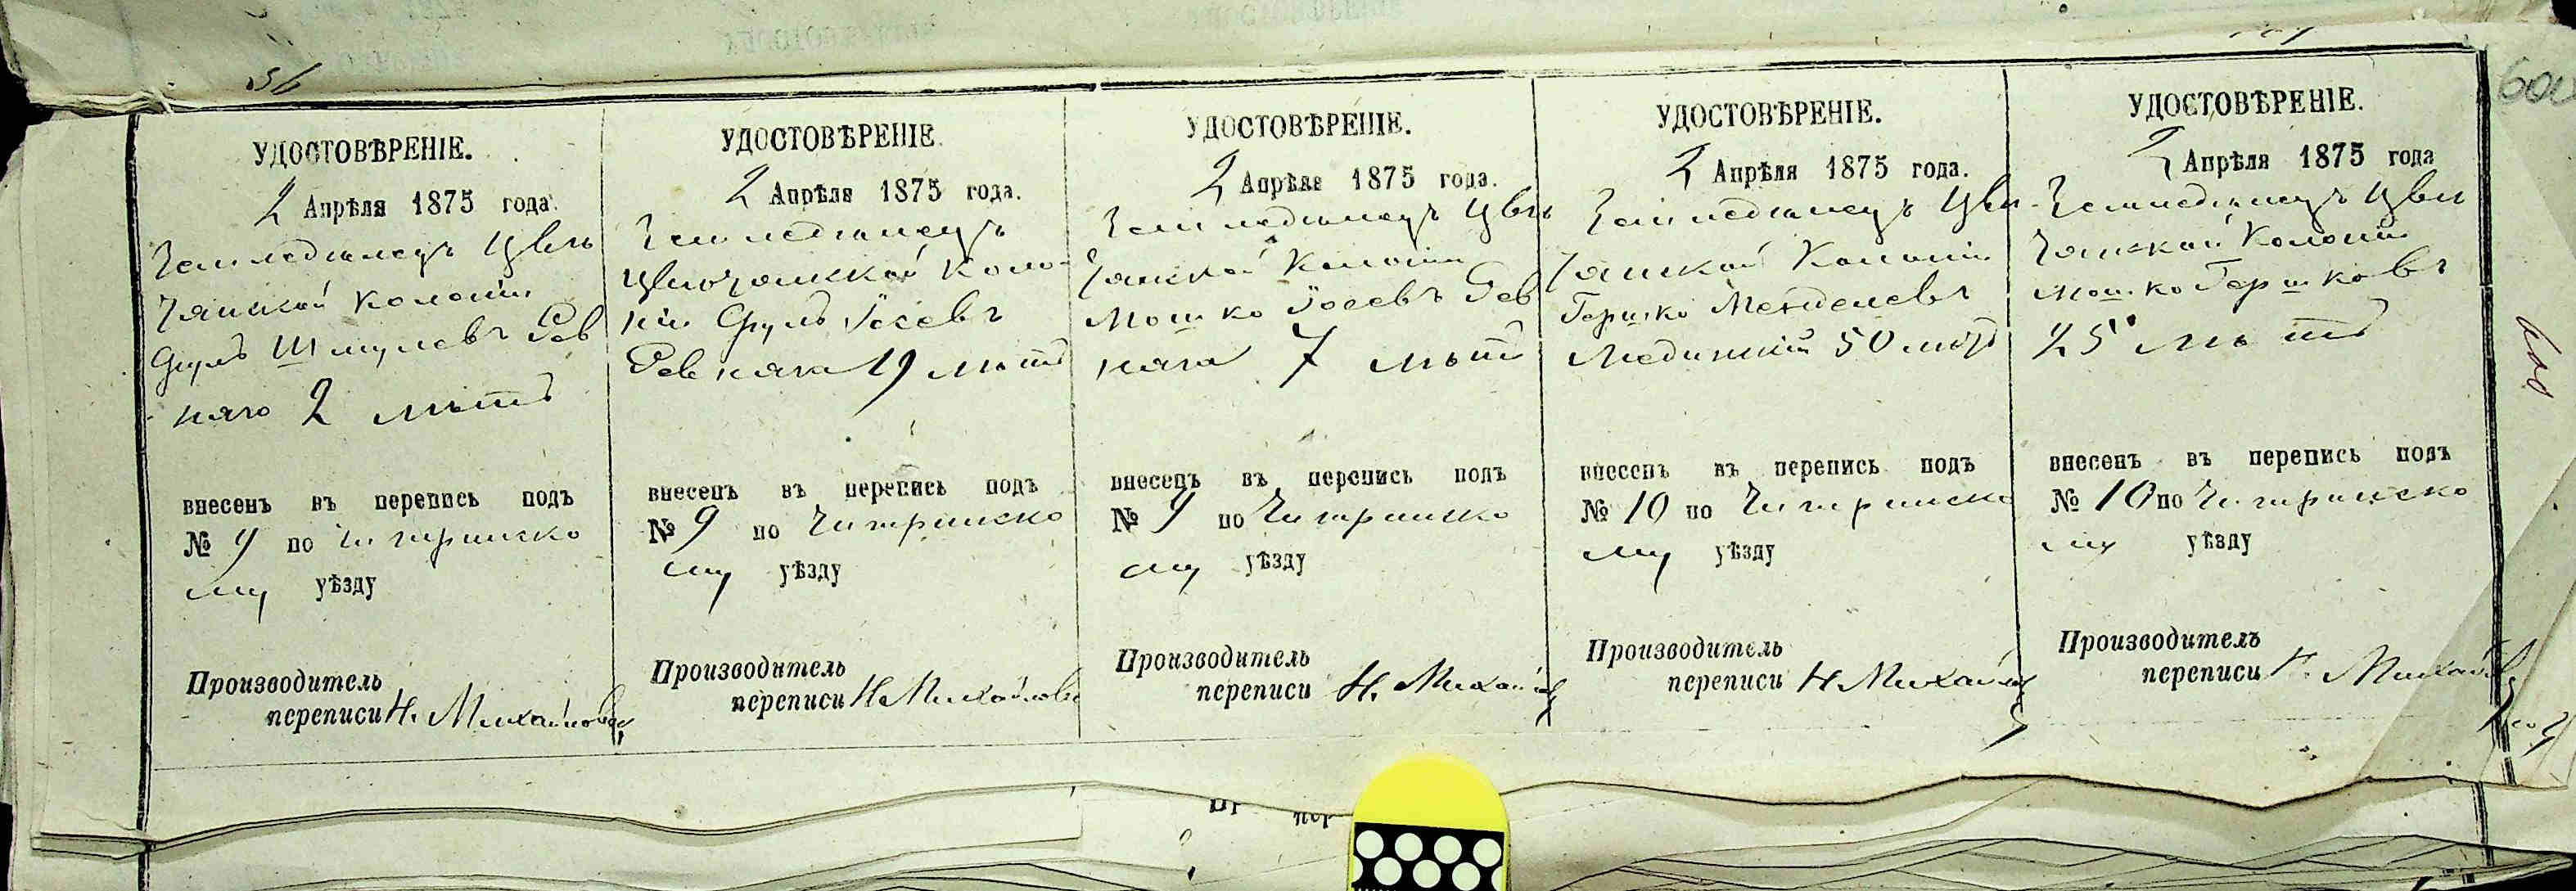 56
УДОСТОВѢРЕНІЕ.
2 Апрѣля 1875 года.
Земледѣлецъ Цвѣт
Колоніи
Сруль Шмулевъ Рев
няго 2 лѣтъ
внесенъ въ перепись подъ
№ 9 по Чигиринско
му уѣзду
Производитель
переписи Н. Михайловъ
УДОСТОВѢРЕНІЕ.
2 Апрѣля 1875 года.
Земледѣлецъ
Коло-
ніи Сруль Іосевъ
Ревняга 19 лѣтъ
внесенъ въ перепись подъ
№ 9 по Чигиринско
му уѣзду
Производитель
переписи Н. Михайловъ
УДОСТОВѢРЕНІЕ.
2 Апрѣля 1875 года.
Земледѣлецъ
Колоніи
Мошко Іосевъ Рев
няга 7 лѣтъ
внесенъ въ перепись подъ
№ 9 по Чигиринско
му уѣзду
Производитель
переписи Н. Михайлов
УДОСТОВѢРЕНІЕ.
2 Апрѣля 1875 года.
Земледѣлецъ
Колоніи
Гершко Менделевъ
50 лѣтъ
внесенъ въ перепись подъ
№ 10 по Чигиринско
му уѣзду
Производитель
переписи Н. Михайлов
УДОСТОВѢРЕНІЕ.
2 Апрѣля 1875 года
Земледѣлецъ
Колоніи
Мошко Гершковъ
25 лѣтъ
внесенъ въ перепись подъ
№ 10 по Чигиринско
му уѣзду
Производитель
переписи Н. Михайлов
600